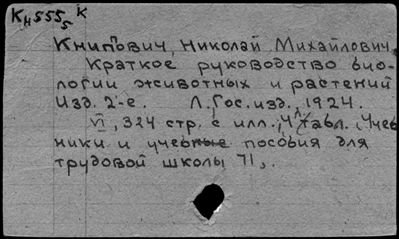 Кн555₅ к
Книпович, Николай Михайлович.
Краткое руководство био-
логии животных и растений
Изд. 2-е. Л. Гос. изд., 1924.
VI, 324 стр. с илл., 4 л. табл. (Учеб
ники и учебные пособия для
трудовой школы